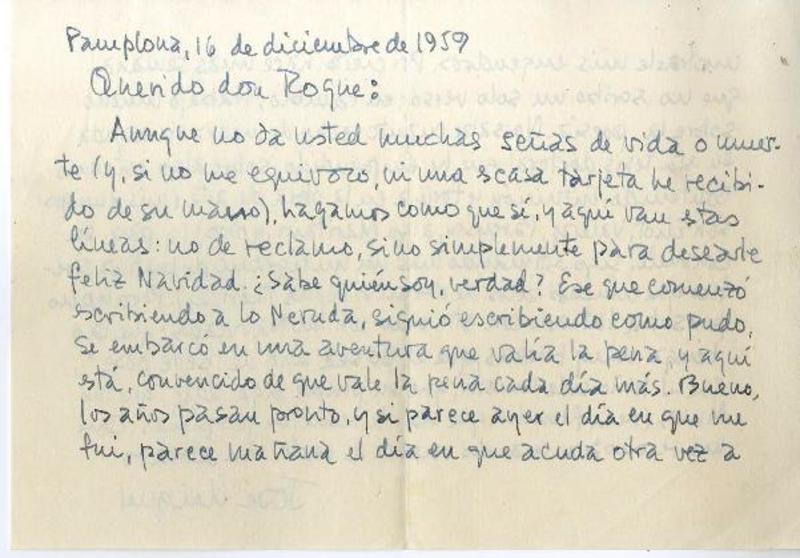 Pamplona, 16 de diciembre de 1959
Querido don Roque:
Aunque no da usted muchas señas de vida o muer-
te (y, si no me equivoco, ni una scasa tarjeta he recibi-
do de su mano), hagamos como que sí, y aquí van estas
líneas: no de reclamo, sino simplemente para desearle
feliz Navidad. ¿Sabe quién soy, verdad? Ese que comenzó
escribiendo a lo Neruda, siguió escribiendo como pudo,
se embarcó en una aventura que valía la pena, y aquí
está, convencido de que vale la pena cada día más. Bueno,
los años pasan pronto, y si parece ayer el día en que me
fui, parece mañana el día en que acuda otra vez a